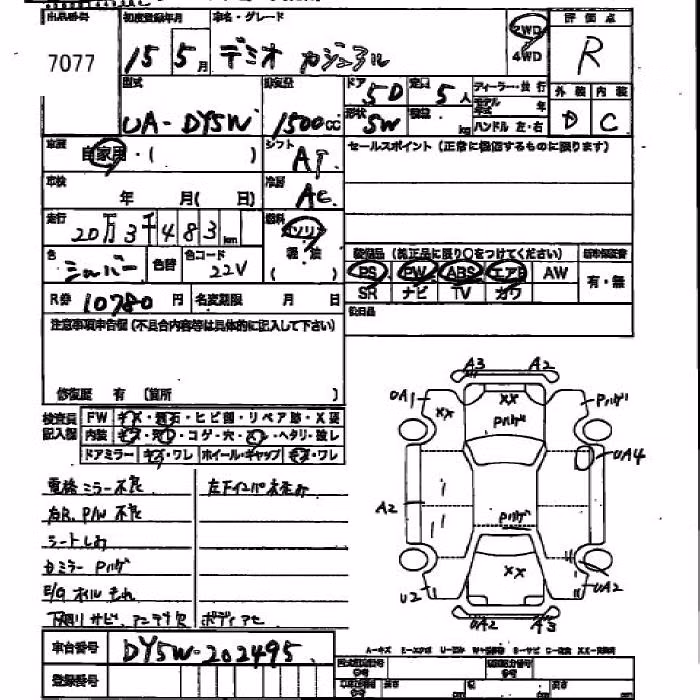 出品番号 初度登録年月 車名・グレード 評価点
7077 15 5月 デミオ カジュアル 2WD R
4WD
型式 排気量 ドア 5D 定員 5人 ディーラー・並行 外装 内装
モデル年式 年
UA-DY5W 1500cc 形状 SW 積量 kg ハンドル 左・右 D C
車歴 自家用・( ) シフト AT セールスポイント(正常に機能するものに限ります)
車検 年 月( 日) 冷房 AC
走行 20万3千483km 燃料 ガソリン
軽油
( )
色 シルバー 色替 色コード 22V
装備品(純正品に限り○をつけてください) 新車保証書
PS PW ABS エアB AW 有・無
SR ナビ TV カワ
R券 10780円 名変期限 月 日 後日品
注意事項申告欄(不具合内容等は具体的に記入して下さい)
修復歴 有 〔箇所 〕
検査員記入欄 FW キズ・飛石・ヒビ割・リペア跡・X要
内装 キズ・汚れ・コゲ・穴・・ヘタリ・激し
ドアミラー キズ・ワレ ホイール・キャップ キズ・ワレ
電格ミラー不良 左下インパネ
右R.P/W 不良
シートしみ
ミラー Pハゲ
E/G オイルもれ
下廻りサビ アンテナ欠 ボディアセ
A3 A2
UA1 XX XX Pハゲ Pハゲ
UA4
A2 Pハゲ
XX
U2 UA2
UA2 A3
車台番号 DY5W-202495
登録番号
A-キズ E-エクボ U-凹み W-修理跡 S-サビ C-腐食